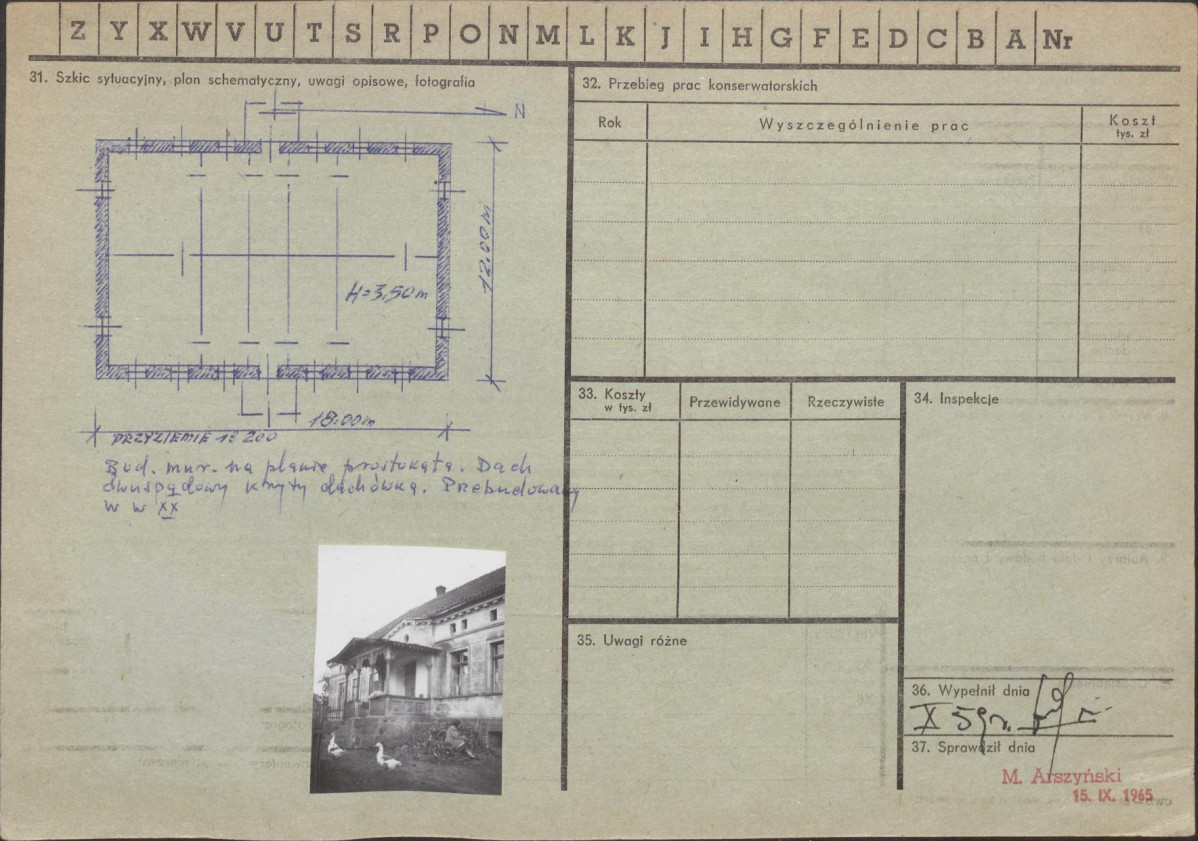 Z Y X W V U T S R P O N M L K J I H G F E D C B A Nr
31. Szkic sytuacyjny, plan schematyczny, uwagi opisowe, fotografia
N
12.00 m
H=3,50 m
18.00 m
PRZYZIEMIE 1:200
Bud. mur. na planie prostokąta. Dach
dwuspadowy kryty dachówką. Przebudowany
w w XX
32. Przebieg prac konserwatorskich
Rok Wyszczególnienie prac Koszt
tys. zł
33. Koszty
w tys. zł
Przewidywane Rzeczywiste
34. Inspekcje
35. Uwagi różne
36. Wypełnił dnia
X 59 r.
37. Sprawdził dnia
M. Arszyński
15. IX. 1965